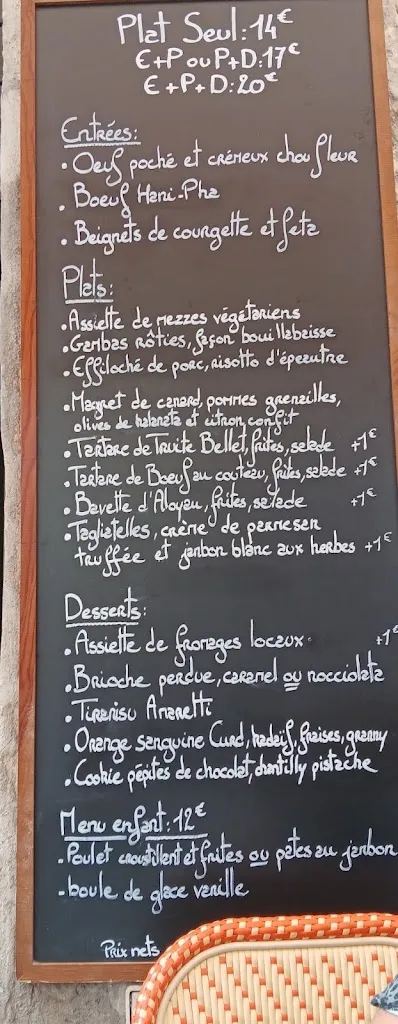 Plat Seul: 14€
E+P ou P+D: 17€
E+P+D: 20€
Entrées:
• Oeuf poché et crémeux chou fleur
• Boeuf Hani-Pha
• Beignets de courgette et feta
Plats:
• Assiette de mezzes végétariens
• Gambas rôties, façon bouillabaisse
• Effiloché de porc, risotto d'épeautre
• Magret de canard, pommes grenailles,
olives de kalamata et citron confit
• Tartare de Truite Bellet, frites, salade +1€
• Tartare de Boeuf au couteau, frites, salade +1€
• Bavette d'Aloyau, frites, salade +1€
• Tagliatelles, crème de parmesan
truffée et jambon blanc aux herbes +1€
Desserts:
• Assiette de fromages locaux +1€
• Brioche perdue, caramel ou nocciolata
• Tiramisu Amaretti
• Orange sanguine Curd, kadaïf, fraises, granny
• Cookie pépites de chocolat, chantilly pistache
Menu enfant: 12€
- Poulet croustillant et frites ou pâtes au jambon
- boule de glace vanille
Prix nets